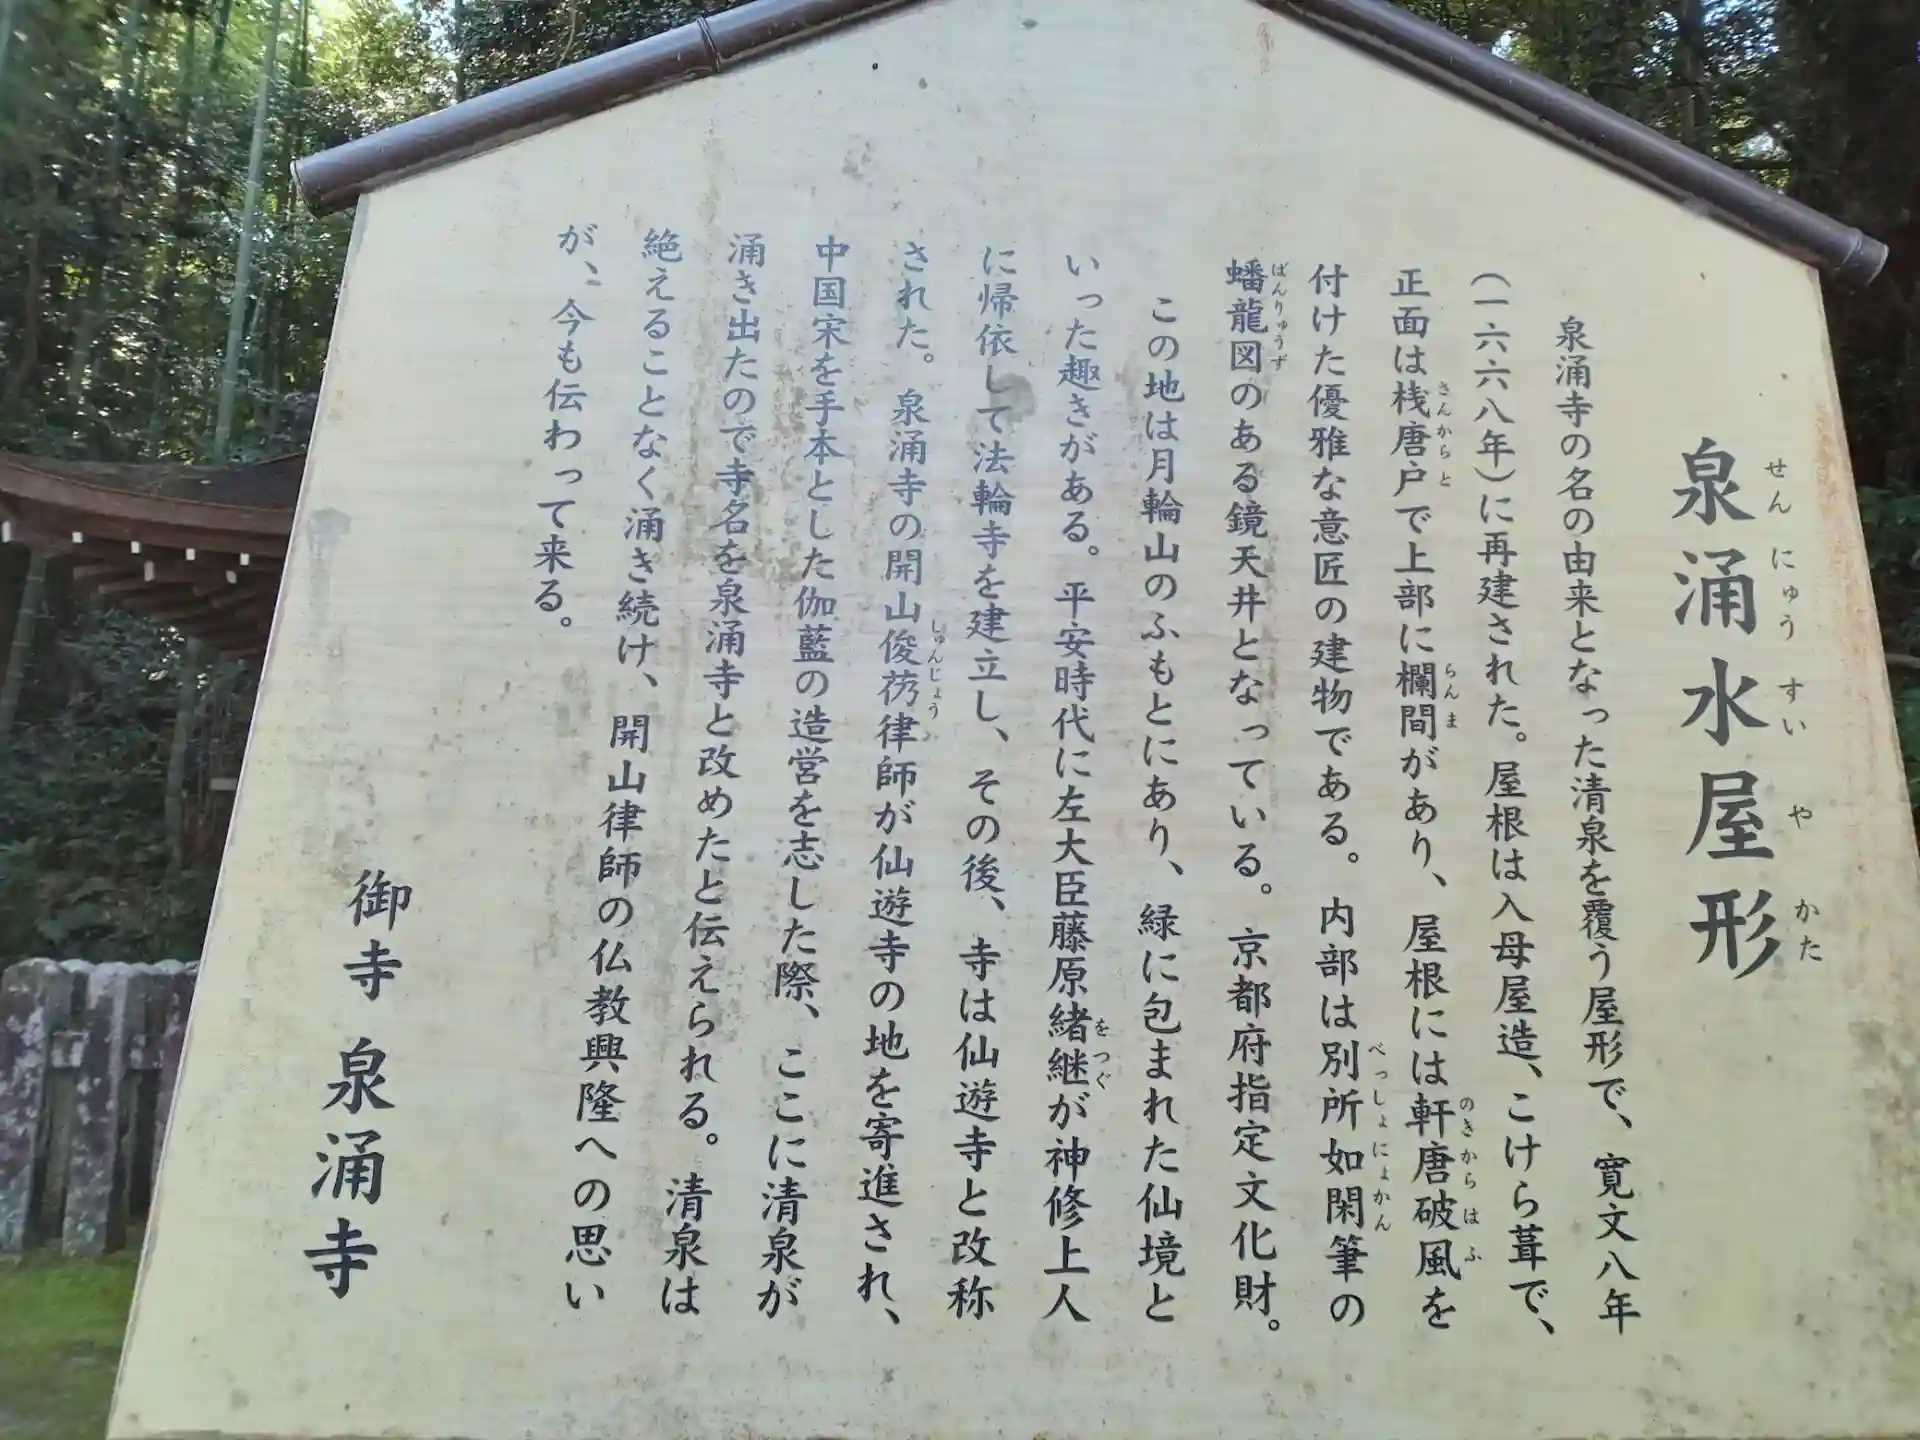 泉涌水屋形
せんにゅうすいやかた
泉涌寺の名の由来となった清泉を覆う屋形で、寛文八年
(一六六八年)に再建された。屋根は入母屋造、こけら葺で、
正面は桟唐戸で上部に欄間があり、屋根には軒唐破風を
さんからと らんま のきからはふ
付けた優雅な意匠の建物である。内部は別所如閑筆の
べっしょにょかん
蟠龍図のある鏡天井となっている。京都府指定文化財。
ばんりゅうず
この地は月輪山のふもとにあり、緑に包まれた仙境と
いった趣きがある。平安時代に左大臣藤原緒継が神修上人
をつぐ
に帰依して法輪寺を建立し、その後、寺は仙遊寺と改称
された。泉涌寺の開山俊芿律師が仙遊寺の地を寄進され、
しゅんじょう
中国宋を手本とした伽藍の造営を志した際、ここに清泉が
涌き出たので寺名を泉涌寺と改めたと伝えられる。清泉は
絶えることなく涌き続け、開山律師の仏教興隆への思い
が、今も伝わって来る。
御寺 泉涌寺